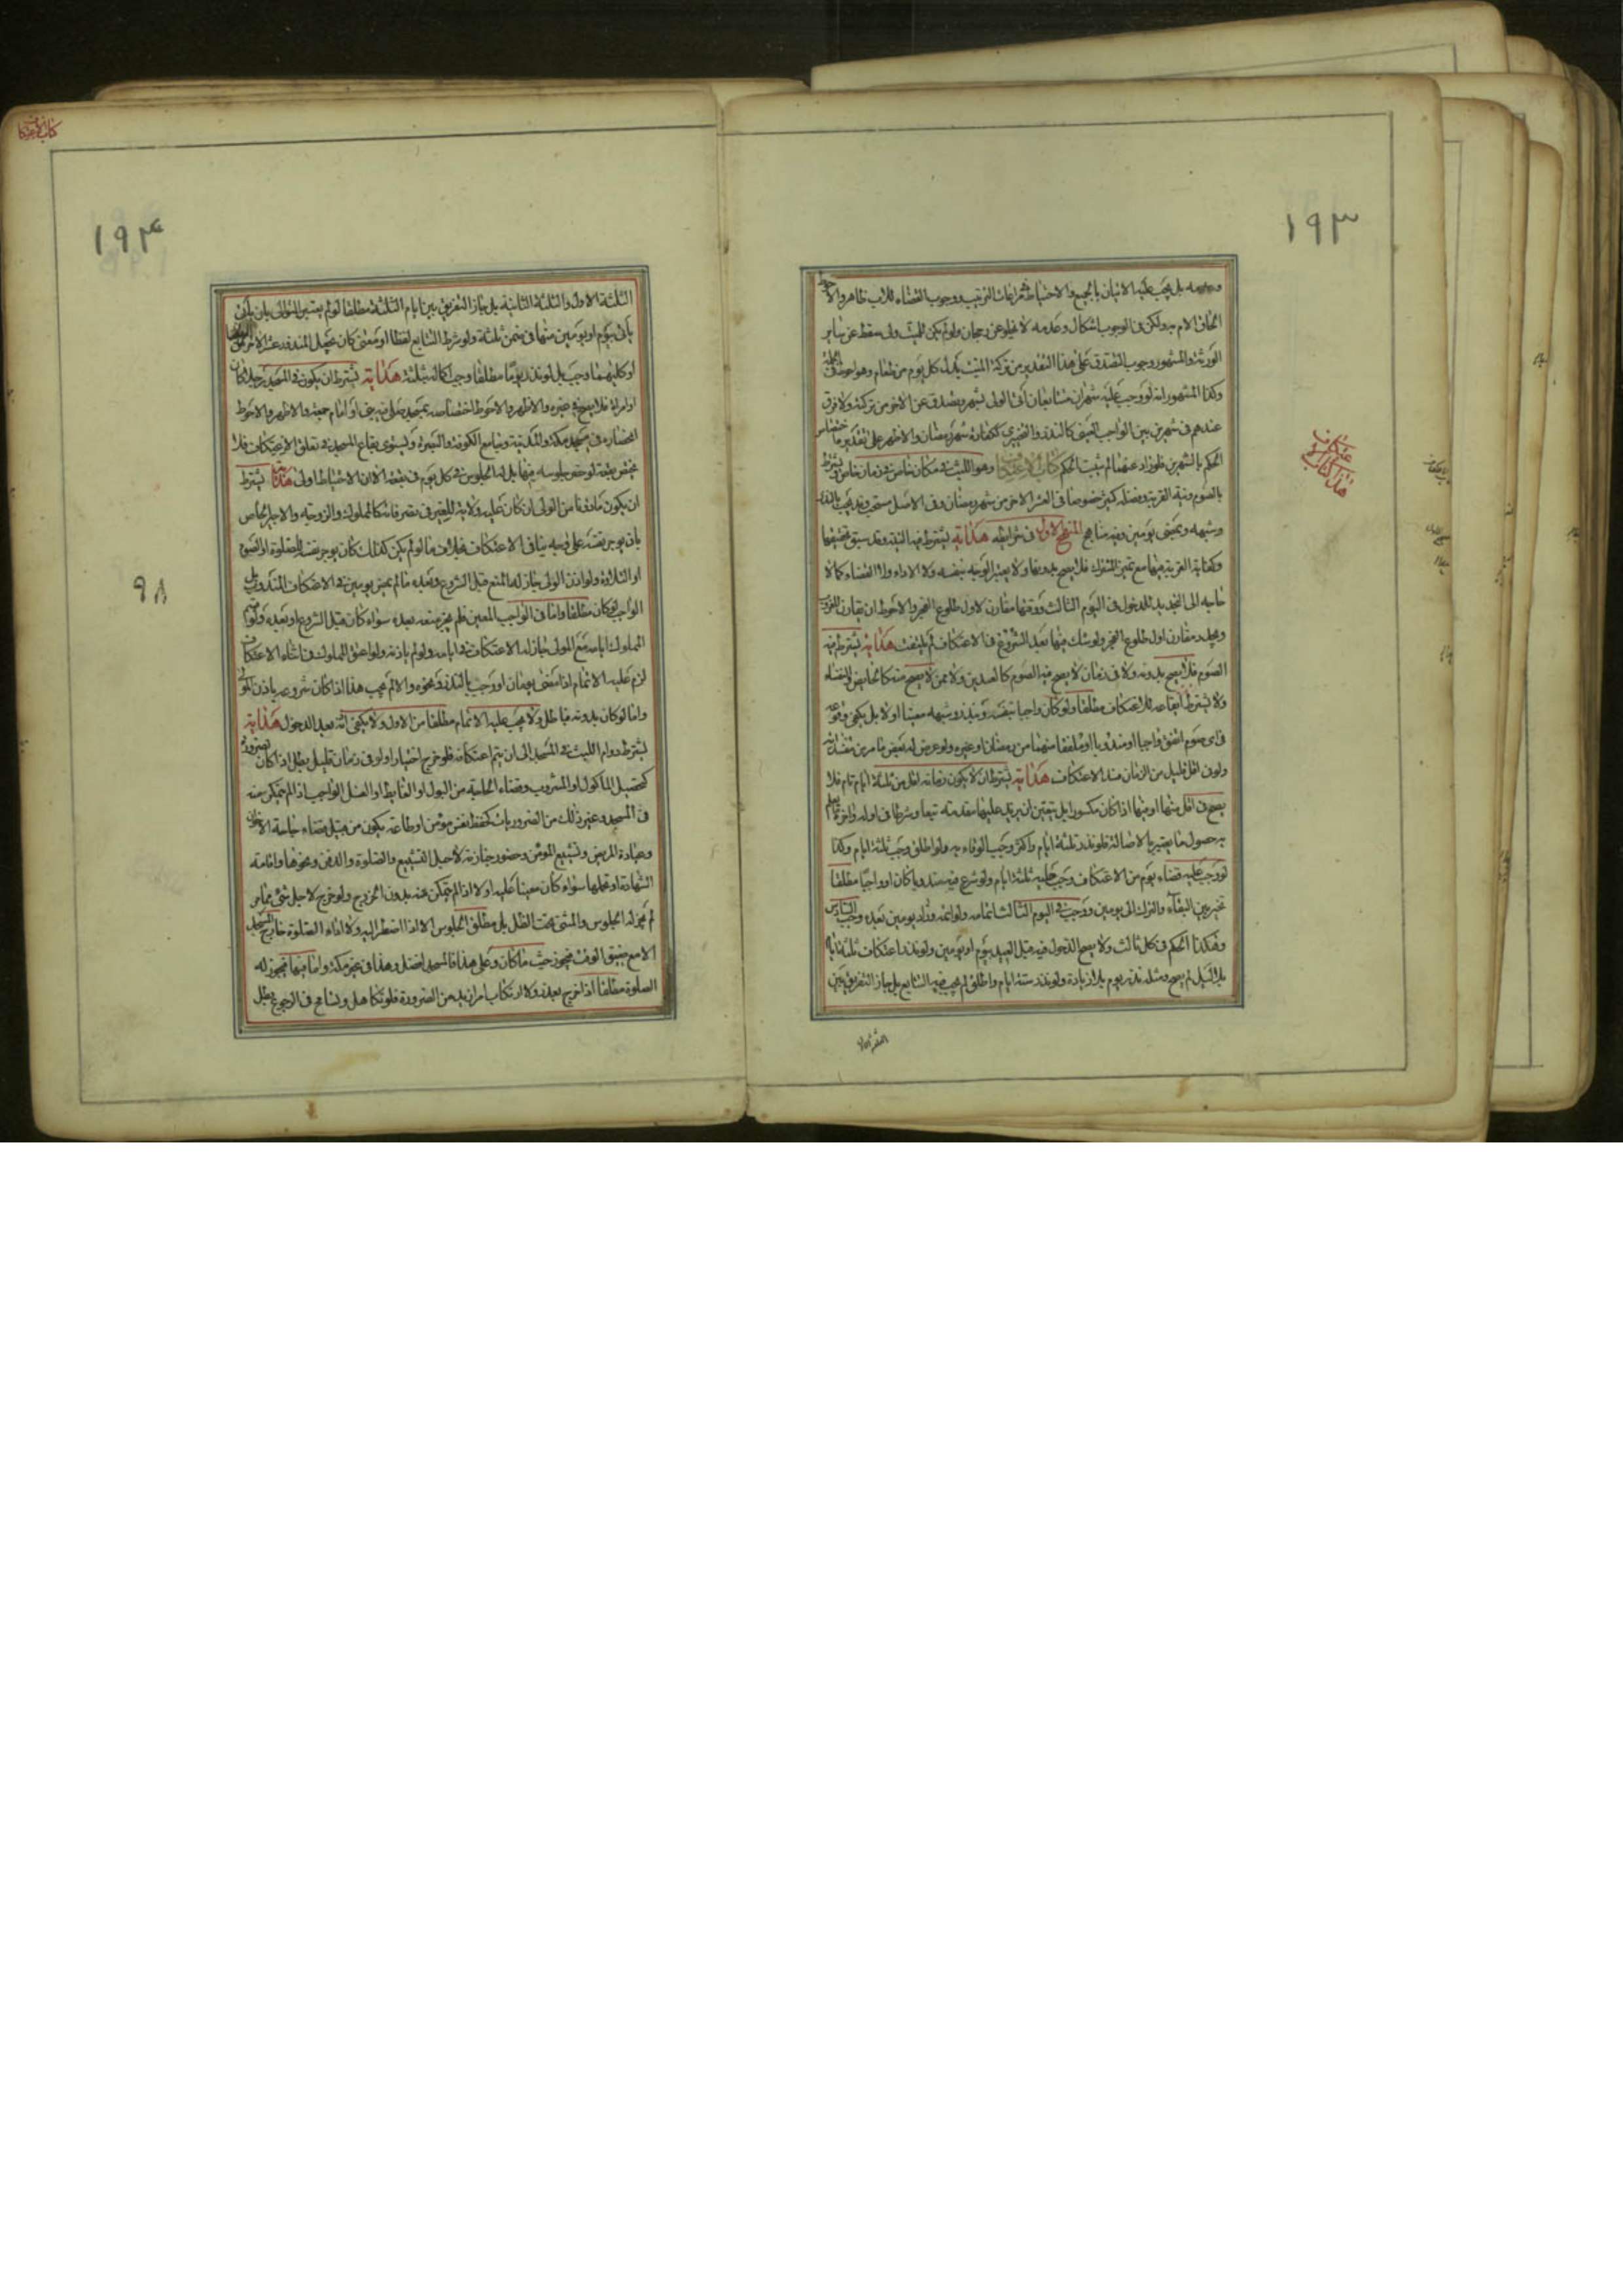 ١٩٣
وعدمه بل يجب عليه الاتيان بالجميع والاحتياط مراعات الترتيب ووجوب القضاء للاب ظاهر والاحوط
الحاق الام به ولكن في الوجوب اشكال وعدمه لا يخلو عن رجحان ولو لم يكن للميت ولى سقط عن ساير
الورثة والمشهور وجوب التصدق على هذا التقدير من تركة الميت بدل كل يوم من طعام وهو احوط في الجملة
وكذا المشهور انه لو وجب عليه شهران متتابعان اتى الولى بشهر ويصدق عن الاخر من تركته ولا فرق
عندهم في شهرين بين الواجب العينى كالنذر والتخييرى ككفارة شهر رمضان والاظهر على تقدير ما اختصاص
الحكم بالشهرين فلو زاد عنهما لم يثبت الحكم كتاب الاعتكاف وهو اللبث في مكان خاص في زمان خاص ويشترط
بالصوم ونية القربة وفضله كثير خصوصا في العشر الاخر من شهر رمضان وفي الاصل مستحب وقد يجب بالنذر
وشبهه وبمضى يومين وفيه مناهج المنهج الاول في شرايطه هداية يشترط فيه النية وقد سبق تحقيقها
وكفاية القربة فيها مع تعين المنوى فلا يصح بدونها ولا يعتبر الوجه بنفسه ولا الاداء ولا القضاء كما لا
حاجه الى التجديد للدخول في اليوم الثالث ووقتها مقارن لاول طلوع الفجر والاحوط ان يقارن للغروب
ويجدد مقارن اول طلوع الفجر ولو شك فيها بعد الشروع في الاعتكاف لم يلتفت هداية يشترط فيه
الصوم فلا يصح بدونه ولا في زمان لا يصح فيه الصوم كالعيدين ولا ممن لا يصح منه كالحايض والنفساء
ولا يشترط ايقاعه للاعتكاف مطلقا ولو كان واجبا بنفسه وبنذر وشبهه معينا او لا بل يكفى وقوعه
في اى صوم اتفق واجبا او مندوبا او ملفقا منهما من رمضان او غيره ولو عرض له بعض ما مر من مفسداته
ولو في اقل قليل من الزمان فسد الاعتكاف هداية يشترط ان لا يكون زمانه اقل من ثلثة ايام تام فلا
يصح في اقل منها او منها اذا كان مكسورا بل يتعين ان يزيد عليها مقدمته تبعا وشرطا في اوله واخره ليعلم
به حصول ما يعتبر بالاصالة فلو نذر ثلثة ايام واكثر وجب الوفاء به ولو اطلق وجب ثلثة ايام وكذا
لو وجب عليه قضاء يوم من الاعتكاف وجب عليه ثلثة ايام ولو شرع فيه مندوبا كان او واجبا مطلقا
تخير بين البقاء والترك الى يومين ووجب في اليوم الثالث اتمامه ولو اتمه وزاد يومين بعده وجب السادس
وهكذا الحكم في كل ثالث ولا يصح الدخول فيه قبل العيد بيوم او يومين ولو نذر اعتكاف ثلثة ايام
بلا ليل لم يصح ومثله نذر يوم بلا زيادة ولو نذر ستة ايام واطلق لم يجب فيه التتابع بل جاز التفريق بين
هذا كتاب الاعتكاف
كتاب الاعتكاف
١٩٤
الثلثة الاول والثلثة الثانية بل جاز التفريق بين ايام الثلثة مطلقا لو لم يعتبر التوالى بان ياتى
ياتى بيوم او يومين منها في ضمن ثلثة ولو شرط التتابع لفظا او معنى كان عجل المنذور عشر الاخر
او كليهما وجب بل لو نذر يوما مطلقا وجب اكماله بثلثة هداية يشترط ان يكون في المسجد رجلا كان
او امراة فلا يصح في غيره والاظهر والاحوط اختصاصه بمسجد صلى فيه نبى او امام جمعة والاظهر والاحوط
انحصاره في مسجد مكة والمدينة وجامع الكوفة والبصرة ويستوى بقاع المسجد في تعلق الاعتكاف فلا
يختص ببقعة لو خص جلوسه فيها بل له الجلوس في كل يوم في بقعة الا ان الاحتياط اولى هداية يشترط
ان يكون ماذونا من الولى ان كان عليه ولاية للغير في تصرفاته كالمملوك والزوجة والاجير الخاص
بان يوجر نفسه على وجه ينافى الاعتكاف بخلاف ما لو لم يكن كذلك كان يوجر نفسه للصلوة او الصوم
او التلاوة ولو اذن الولى جاز له المنع قبل الشروع وبعده ما لم يمض يومين في الاعتكاف المندوب بل
الواجب لو كان مطلقا واما في الواجب المعين فلم يجز منعه بعده سواء كان قبل الشروع او بعده ولو قسم
المملوك ايامه مع المولى جاز له الاعتكاف في ايامه ولو لم ياذنه ولو اعتق المملوك في اثناء الاعتكاف
لزم عليه الاتمام اذا مضى يومان او وجب بالنذر ونحوه والا لم يجب هذا اذا كان شروعه باذن المولى
واما لو كان بدونه فباطل ولا يجب عليه الاتمام مطلقا من الاول ولا يكفى اذنه بعد الدخول هداية
يشترط دوام اللبث في المسجد الى ان يتم اعتكافه فلو خرج اختيارا ولو في زمان قليل بطل الا اذا كان بضرورة
كتحصيل الماكول او المشروب وقضاء الحاجة من البول او الغايط او الغسل الواجب اذا لم يتمكن منه
في المسجد وغير ذلك من الضروريات كحفظ نفس مومن او طاعة يكون من قبيل قضاء حاجة الاخوان
وعيادة المريض وتشييع المؤمن وحضور جنازته لاجل التشييع والصلوة والدفن ونحوها واقامته
الشهادة او تحملها سواء كان معينا عليه او لا اذا لم يتمكن عنه بدون الخروج ولو خرج لاجل شئ مما مر
لم يجز له الجلوس والمشى تحت الظل بل مطلق الجلوس الا اذا اضطر اليه ولا اداء الصلوة خارج المسجد
الا مع ضيق الوقت فيجوز حيث ما كان وعلى هذا فالمسجد افضل وهذا في غير مكة واما فيها فيجوز له
الصلوة مطلقا اذا خرج بعذر ولا ارتكاب امر ازيد من الضرورة فلو تكاهل وتسامح في الرجوع بطل
٩٨